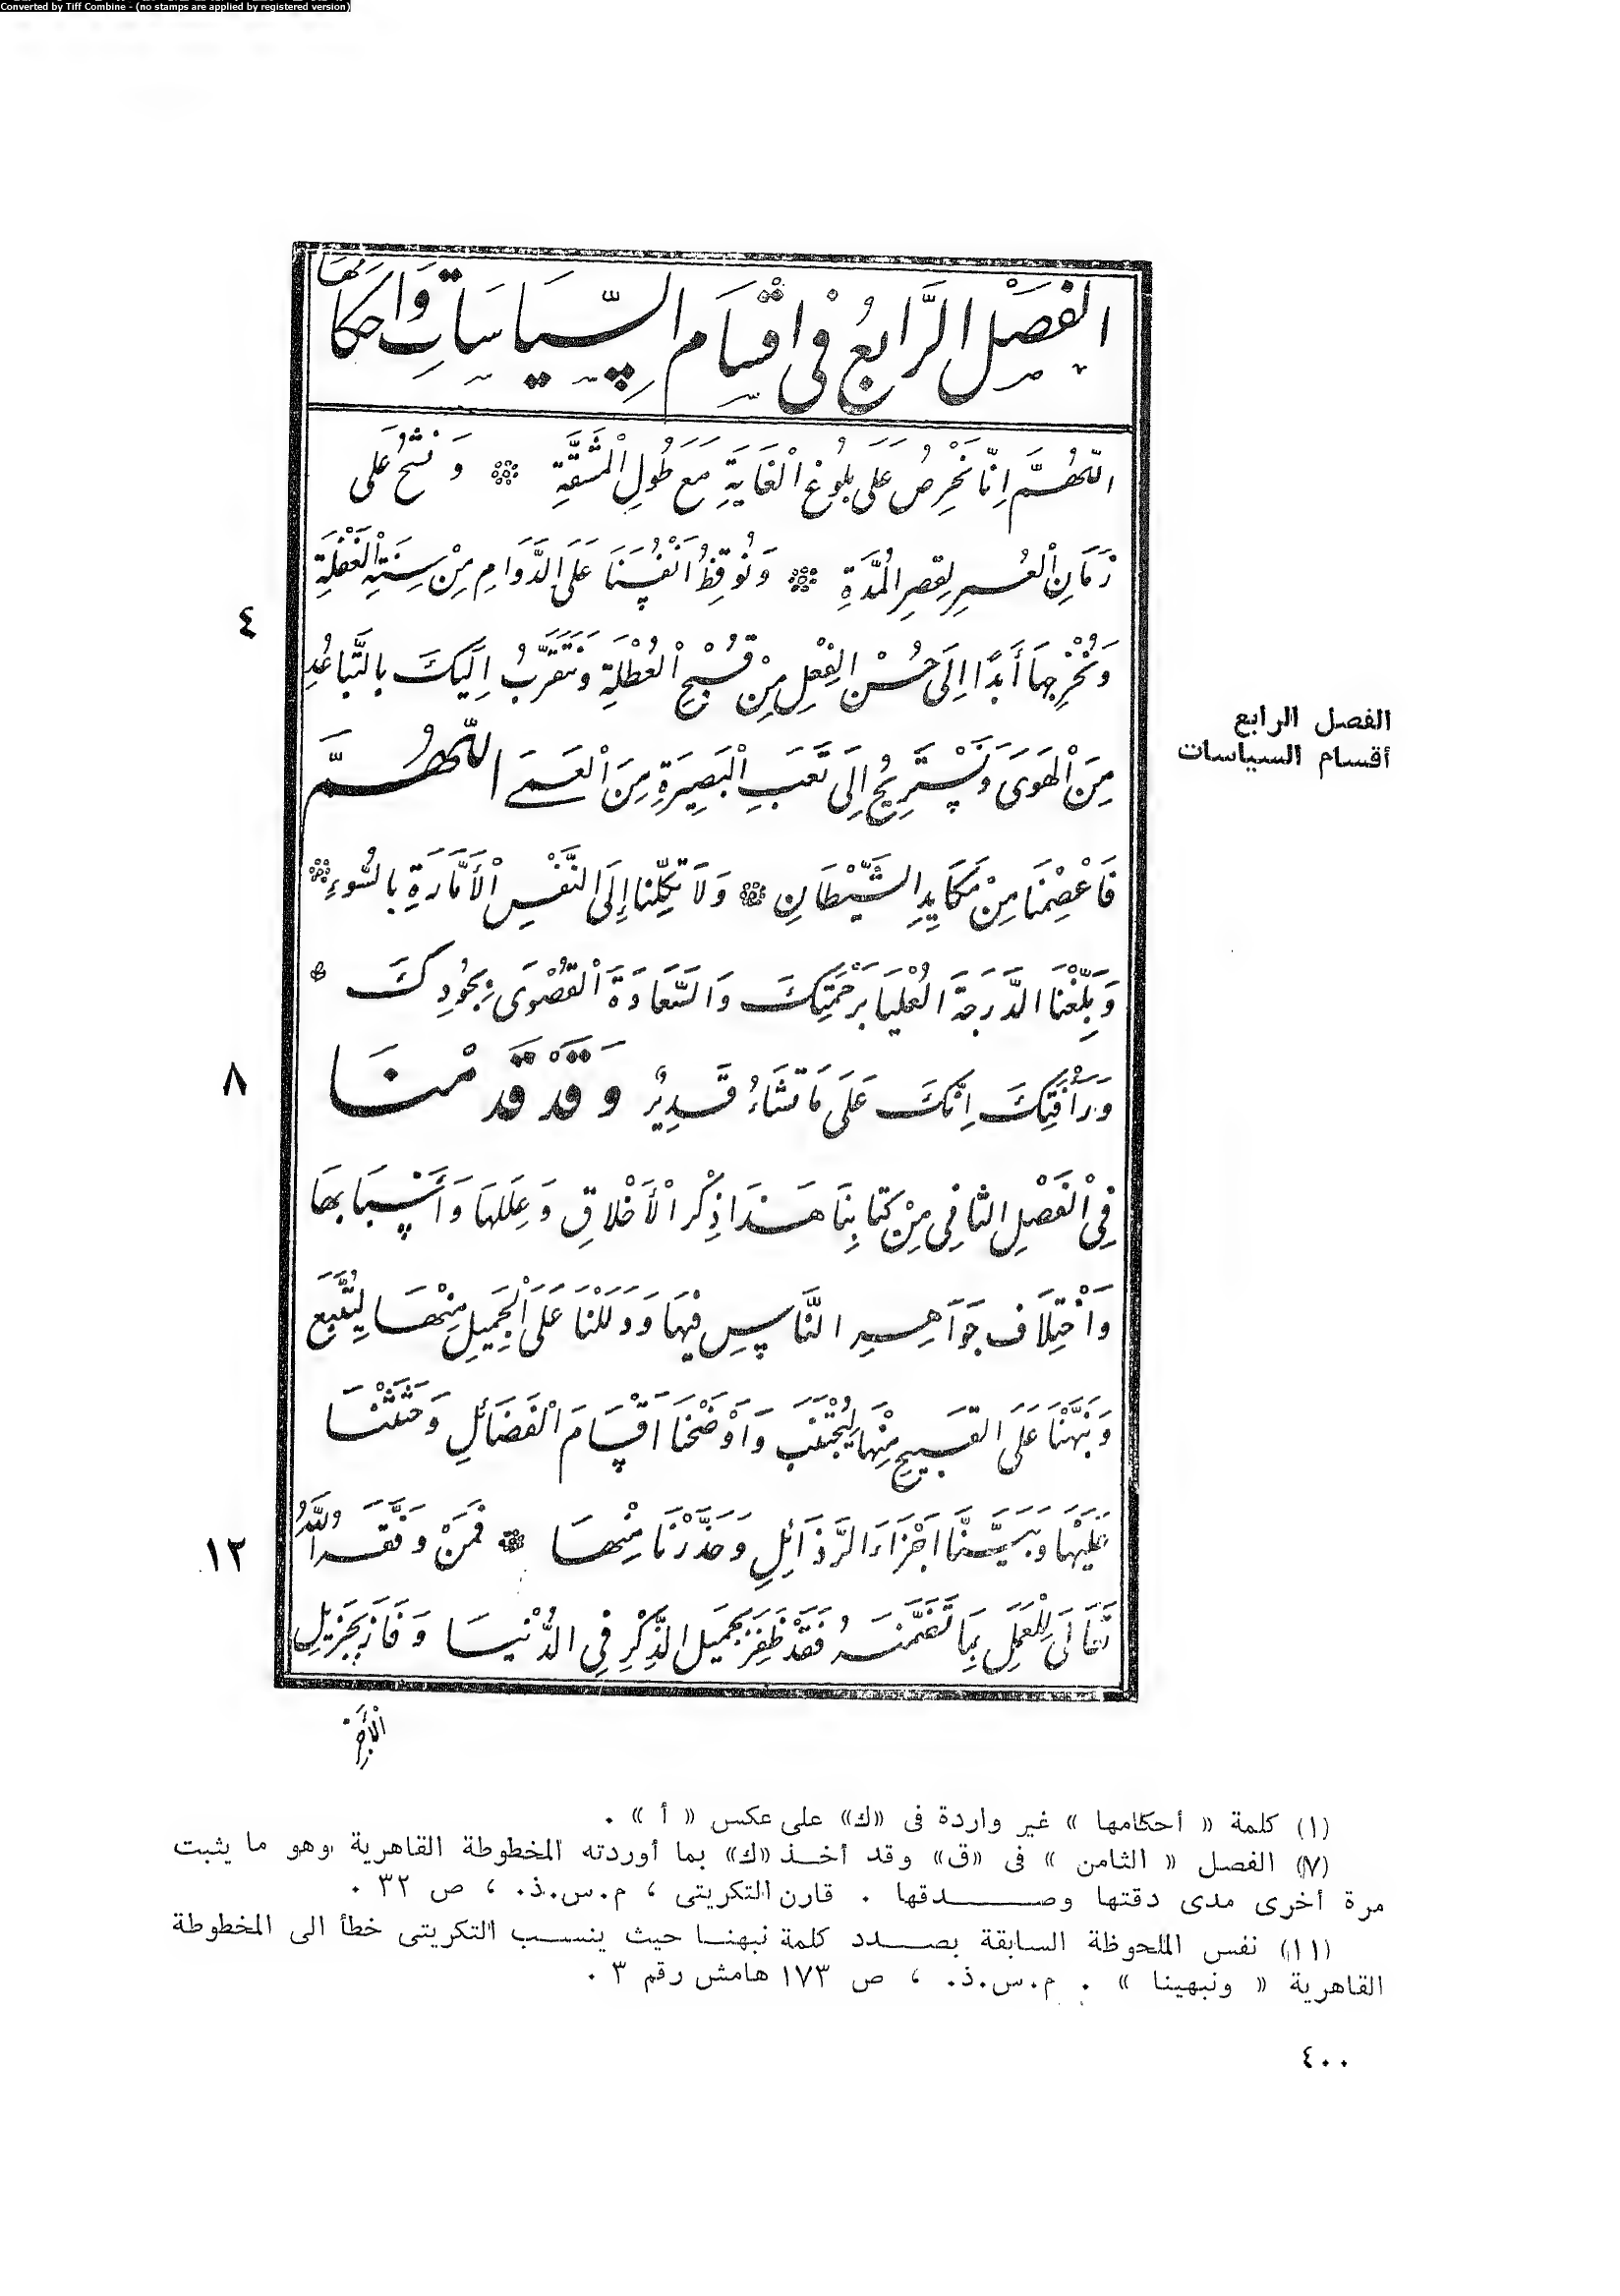 Converted by Tiff Combine - (no stamps are applied by registered version)
الفَصْل الرَّابعُ فْى اقْسَام السِّيَاسَات وَاحكَامهَا
اللّهُمَّ اِنَّا نَحْرِصُ عَلَى بلُوُغ الْغَايَةِ مَعَ طُولِ الْمَشَقَّةِ وَنشحُ عَلَى
زَمَانِ الْعُسرِ لِقصِرِ الْمُدَّةِ وَنُوقِظُ اَنْفُسَنَا عَلَى الدَّوَامِ مِنْ سِنَتِهِ الْغَفْلَةِ
٤
وَنُخْرِجهَا أَبدًا اِلَى حُسْنِ الفِعْلِ مِنْ قُبْحِ الْعُطْلَةِ وَنَتَقَرَّبُ اِلَيكَ بالتَّبَاعُدِ
الفصل الرابع
أقسام السياسات
مِنَ الْهَوَىَ وَنَسْتَرِيحُ اِلَى تَعَبِ الْبَصِيَرةِ مِنَ الْعَمَى اللّهُمَّ
فَاعْصِمْنَا مِنْ مَكَايِدِ الشَّيْطَانِ وَلاَ تَكِلْنا إِلَى النَّفْسِ الْأَمَّارَةِ بالسُّوءِ
وَبَلِّغْنا الدَّرَجَةَ الْعُلْيَا بَرَحْمَتِكَ وَالسَّعَادَةَ الْقُصْوَى بِجُودِكَ
وَرَأْفَتِكَ اِنَّكَ عَلَى مَا تَشَاءُ قَدِيرٌ وَقَدْ قَدَّمْنَا
٨
فِى الْفَصْلِ الثانِى مِنْ كتابِنَا هَذَا ذِكْر الْأَخْلاقِ وَعِلَلهَا وَأَسْبَابهَا
وَاخْتِلَاف جَوَاهِرِ النَّاسِ فيْهَا وَدَلَلْنَا عَلَى الْجَمِيلِ مِنْهَا لِيُتَّبَعَ
وَنَبَّهْنَا عَلَى القَبيحِ مِنْهَا لِيُجْتَنَبَ وَاَوْضَحْنَا اَقْسَامَ الْفَضَائلِ وَحَثَثْنَا
عَلَيْهَا وَبَيَّنَّا اَجْزَاءَ الرَّذَائلِ وَحَذَّرْنَا مِنْهَا فمَنْ وَفَّقَهُ اللّهُ
١٢
تَعَالَى لِلْعَمَلِ بِمَا تَضَمَّنَهُ فَقَدْ ظَفِرَ بجَمِيلِ الذِّكْرِ فِى الدُّنْيَا وَفَازَ بَجزِيلِ
الْأَجْر
(١) كلمة « أحكامها » غير واردة فى «ك» على عكس « أ » .
(٧) الفصل « الثامن » فى «ق» وقد أخـذ «ك» بما أوردته المخطوطة القاهرية وهو ما يثبت
مرة أخرى مدى دقتها وصـــدقها . قارن التكريتى ، م.س.ذ. ، ص ٣٢ .
(١١) نفس الملحوظة السابقة بصـدد كلمة نبهنـا حيث ينسـب التكريتى خطأ الى المخطوطة
القاهرية « ونبهينا » . م.س.ذ. ، ص ١٧٣ هامش رقم ٣ .
٤٠٠